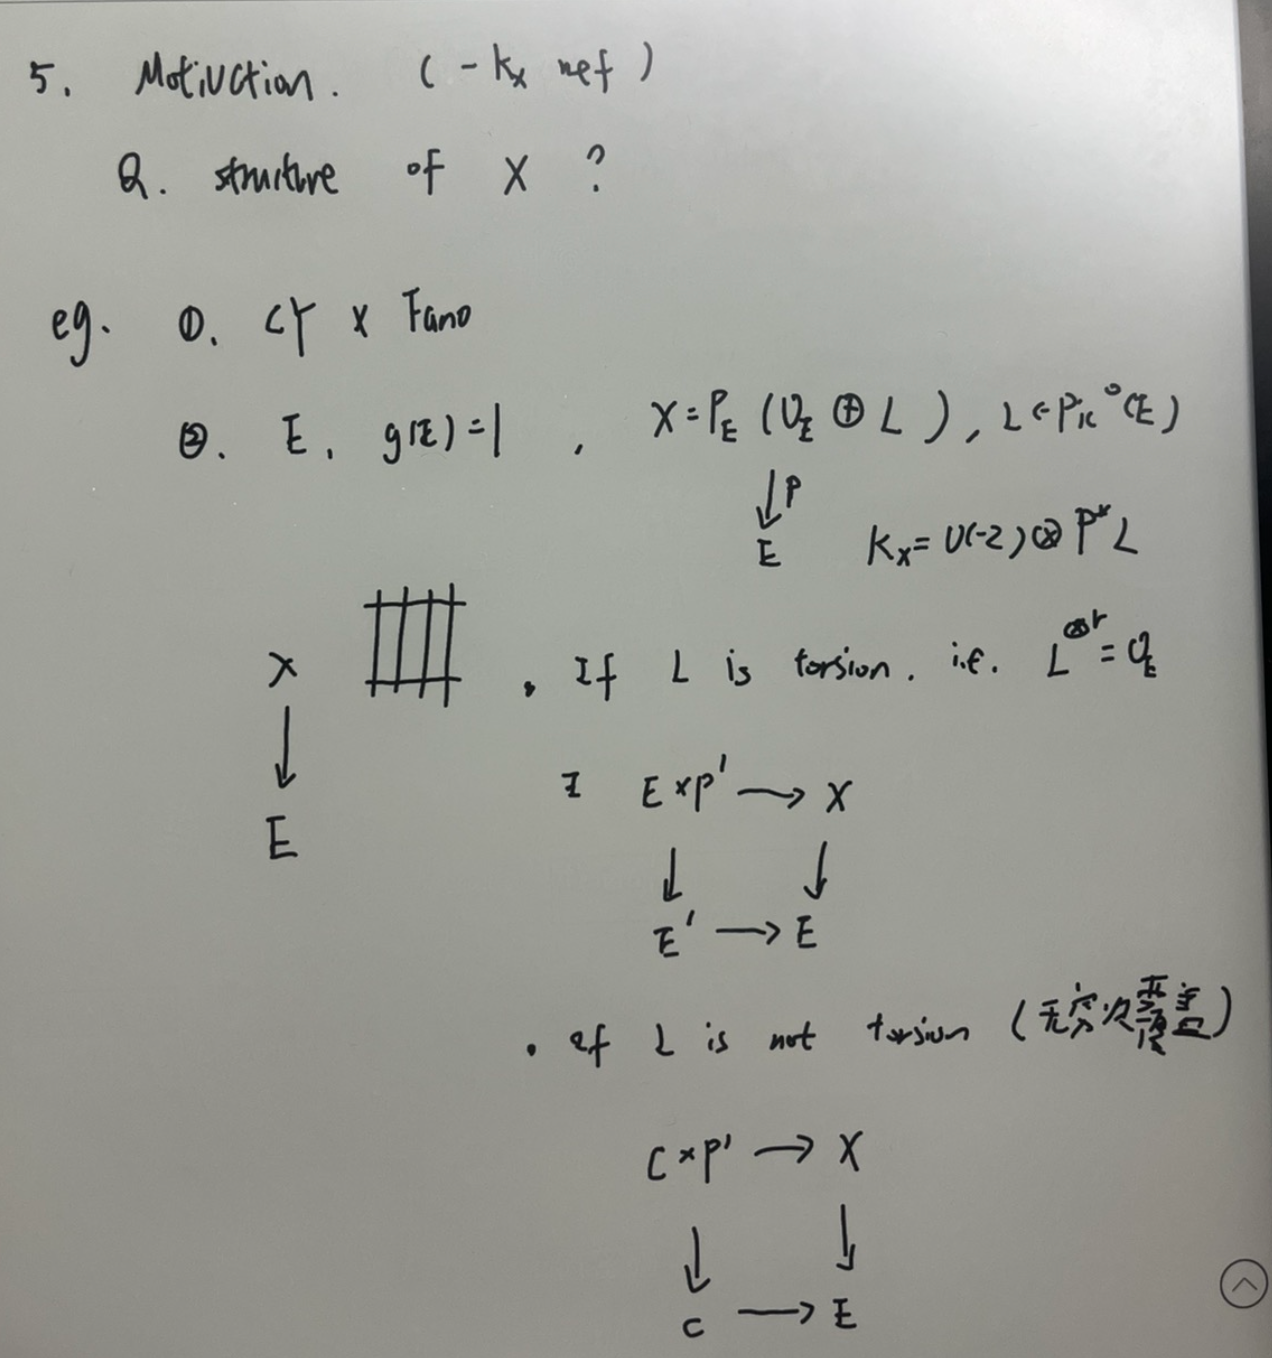 5. Motivation. ( - Kx nef )
Q. structure of X ?
eg. ①. CY x Fano
②. E, g(E)=1 , X=P_E (O_E ⊕ L ), L∈Pic°(E)
↓P
E Kx= O(-2)⊗P*L
X . If L is torsion. i.e. L^{⊗r}=O_E
↓
E
∃ E×P' → X
↓ ↓
E' → E
. If L is not torsion (无穷次覆盖)
C×P' → X
↓ ↓
C → E